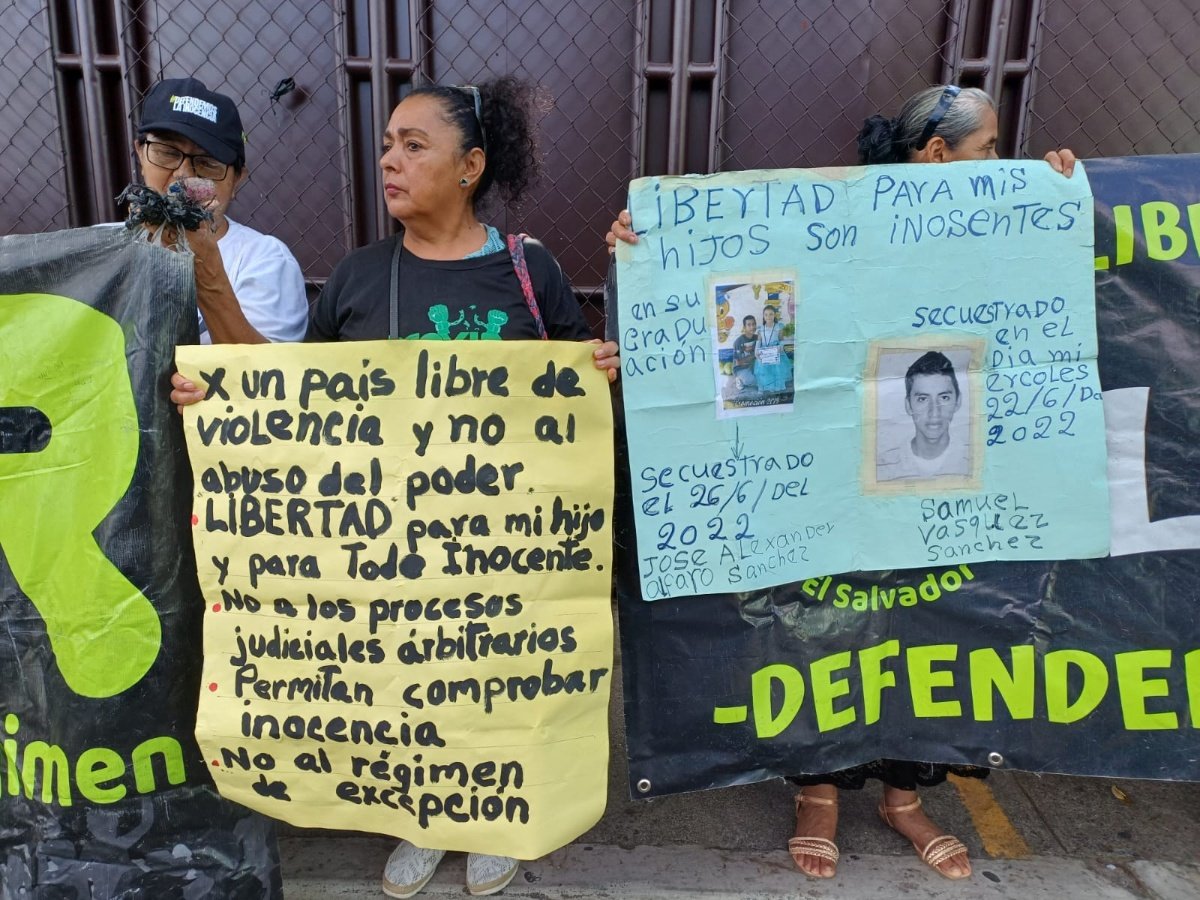 #DEFENDEMOS
LA INOCENCIA
R
imen
X un país libre de
violencia y no al
abuso del poder.
LIBERTAD para mi hijo
y para Todo Inocente.
No a los procesos
judiciales árbitrarios
Permitan comprobar
inocencia
No al régimen
de excepción
LIBERTAD PARA MIS
HIJOS SON INOSENTES
EN SU
GRADU
ACIÓN
SECUESTRADO
EL 26/6/DEL
2022
JOSE ALEXANDER
alfaro SANCHEZ
SECUESTRADO
EN EL
DIA MI
ERCOLES
22/6/De
2022
SAMUEL
VASQUEZ
SANCHEZ
LIB
L
El Salvador
-DEFENDE